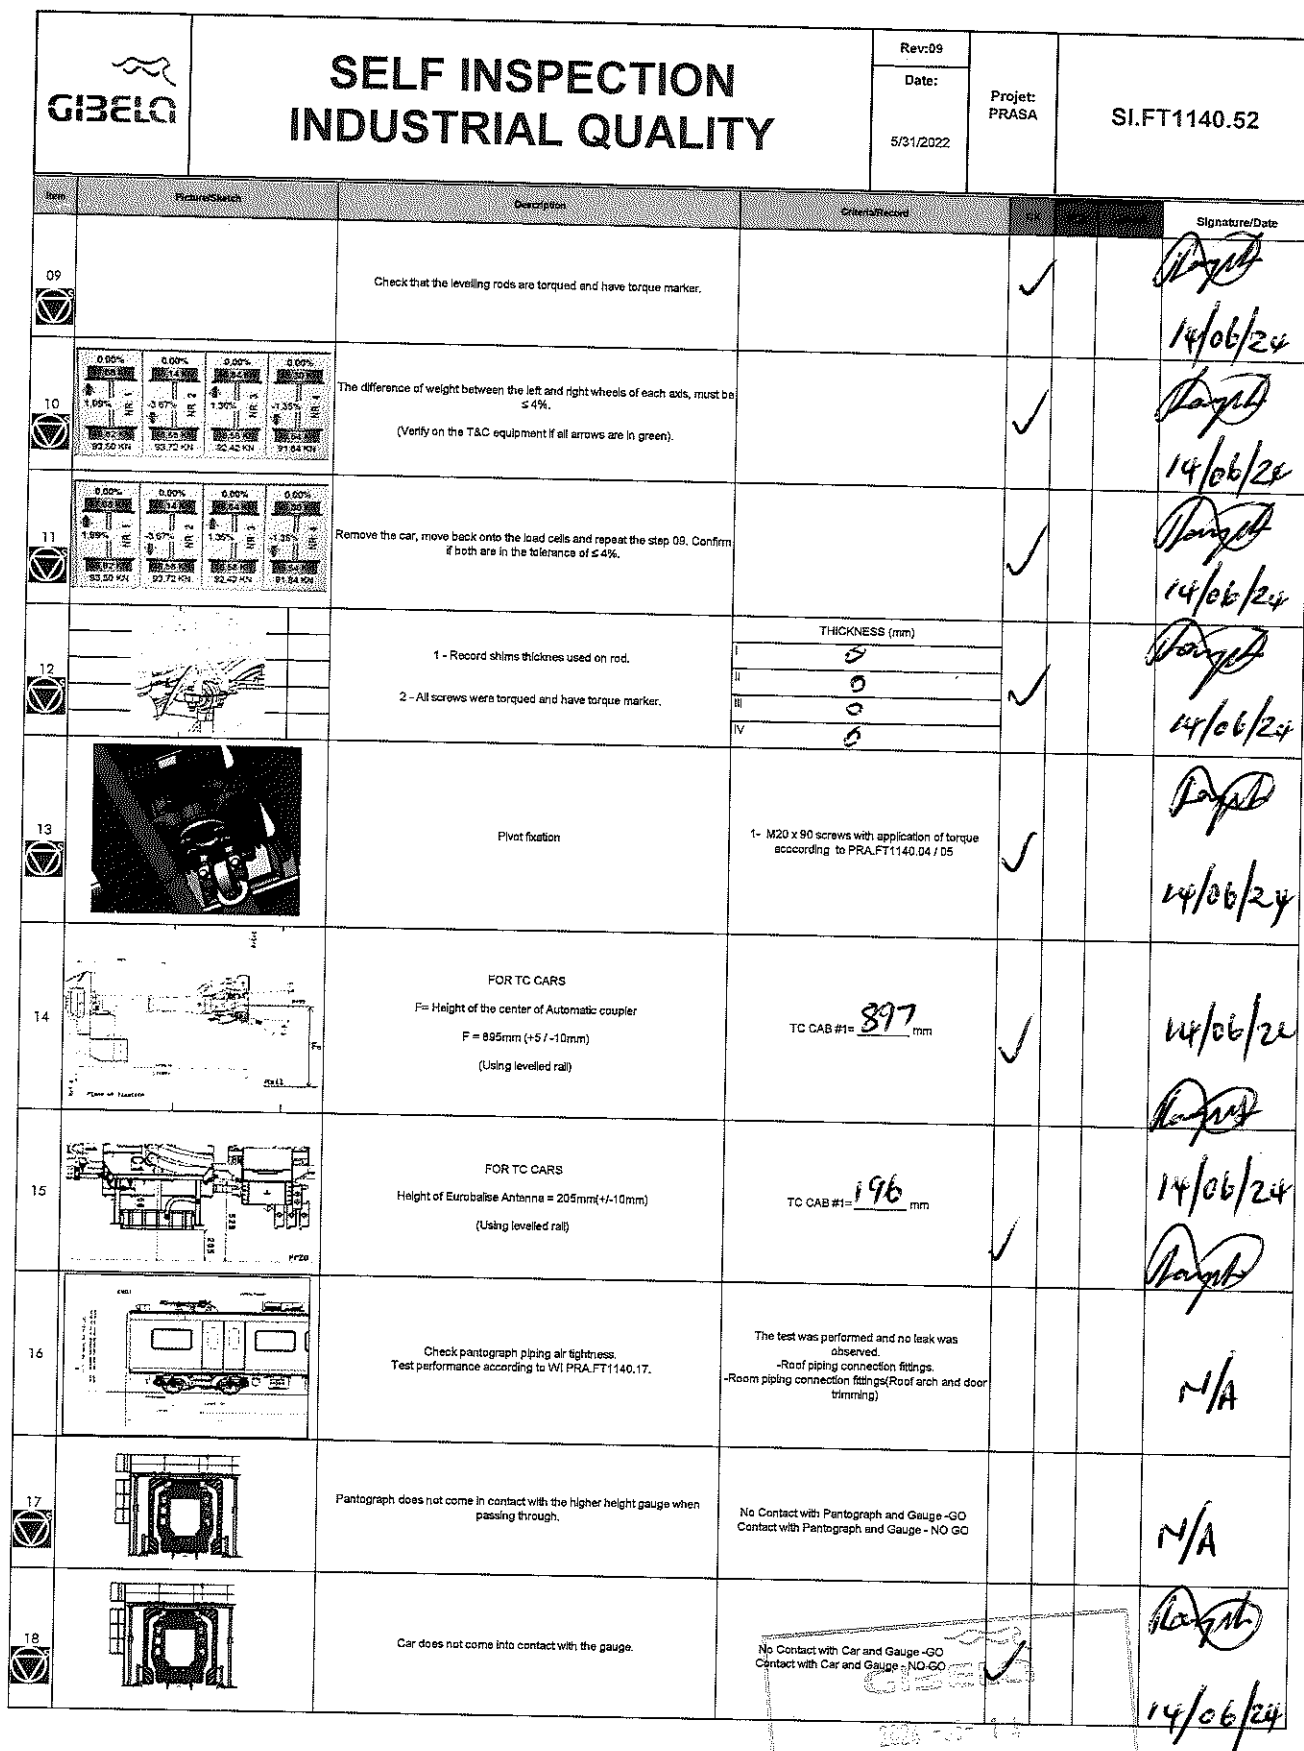 GIBELA
SELF INSPECTION
INDUSTRIAL QUALITY
Rev:09
Date:
5/31/2022
Projet:
PRASA
SI.FT1140.52
Item
Picture/Sketch
Description
Criteria/Record
Signature/Date
09
Check that the levelling rods are torqued and have torque marker.
✓
14/06/24
10
0.00% 0.00% 0.00% 0.00%
NR. 1 NR. 2 NR. 3 NR. 4
93.50 KN 93.72 KN 92.42 KN 91.84 KN
The difference of weight between the left and right wheels of each axis, must be
≤ 4%.
(Verify on the T&C equipment if all arrows are in green).
✓
14/06/24
11
0.00% 0.00% 0.00% 0.00%
NR. 1 NR. 2 NR. 3 NR. 4
93.50 KN 93.72 KN 92.42 KN 91.84 KN
Remove the car, move back onto the load cells and repeat the step 09. Confirm
if both are in the tolerance of ≤ 4%.
✓
14/06/24
12
1 - Record shims thicknes used on rod.
2 - All screws were torqued and have torque marker.
THICKNESS (mm)
I 0
II 0
III 0
IV 0
✓
14/06/24
13
Pivot fixation
1- M20 x 90 screws with application of torque
acccording to PRA.FT1140.04 / 05
✓
14/06/24
14
FOR TC CARS
F= Height of the center of Automatic coupler
F = 895mm (+5 / -10mm)
(Using levelled rail)
TC CAB #1= 897 mm
✓
14/06/24
15
205
FOR TC CARS
Height of Eurobalise Antenna = 205mm(+/-10mm)
(Using levelled rail)
TC CAB #1= 196 mm
✓
14/06/24
16
Check pantograph piping air tightness.
Test performance according to WI PRA.FT1140.17.
The test was performed and no leak was
observed.
-Roof piping connection fittings.
-Room piping connection fittings(Roof arch and door
trimming)
N/A
17
Pantograph does not come in contact with the higher height gauge when
passing through.
No Contact with Pantograph and Gauge -GO
Contact with Pantograph and Gauge - NO GO
N/A
18
Car does not come into contact with the gauge.
No Contact with Car and Gauge -GO
Contact with Car and Gauge - NO GO
✓
GIBELA
14/06/24